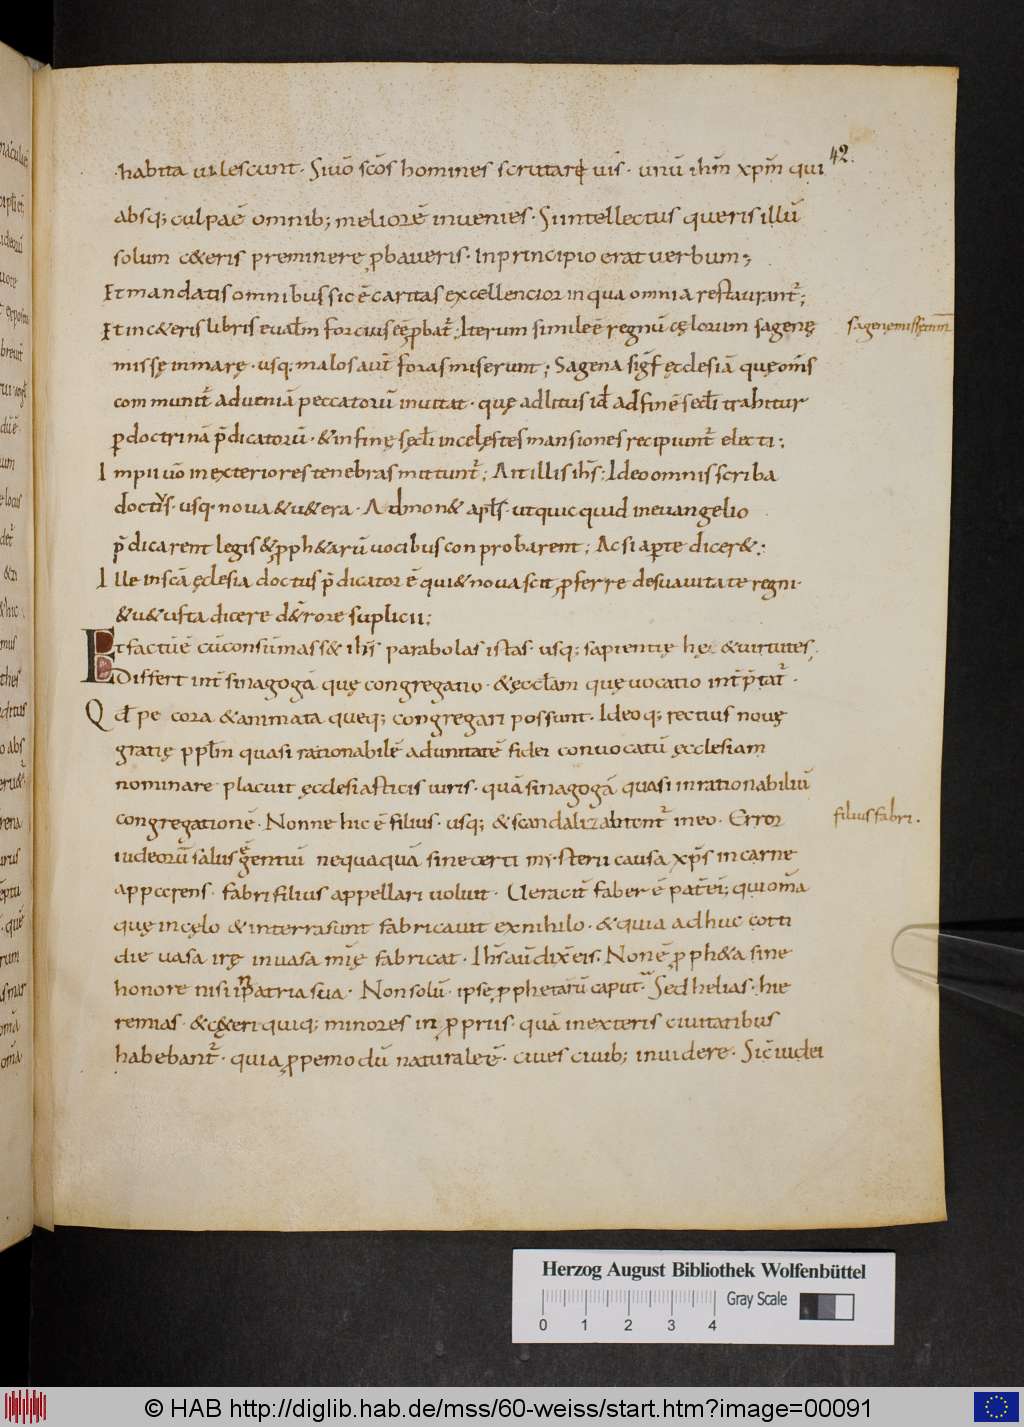 42.
habita uilescunt. Siuō sc̄os homines scrutare uis. unū ihm̄ xpm̄ qui
absq; culpa ē omnib; meliorē inuenies. Si intellectus queris illū
solum c&eris preminere ꝓbaueris. In principio erat uerbum;
Et mandatis omnibus sic ē caritas excellencior in qua omnia restaurant᷑;
Et in c&eris libris euaḡlm forcius eē ꝓbat᷑. Iterum simile ē regnū cęlorum sagenę
sagenę missę in m̄
missę in mare. usq; malos aut̄ foras miserunt; Sagena siḡf ęcclesiā quę om̄s
communit᷑ ad ueniā peccatorū inuitat. quę ad litus id̄ ad finē sęcl̄i trahitur
ꝑ doctrinā p̄dicatorū. & in fine sęcl̄i in celestes mansiones recipiunt᷑ electi;
Impii uō in exteriores tenebras mittunt᷑; Ait illis ihs̄; Ideo omnis scriba
doctus. usq. noua & u&era. Admon& apl̄s. ut quicquid in euangelio
p̄dicarent legis & ꝓph&arū uocibus conprobarent; Ac si aperte dicer&;
Ille in sc̄a ęclesia doctus p̄dicator ē qui & noua scit ꝓferre de suauitate regni
& u&usta dicere de t̄rore suplicii;
Et factū ē cū consūmass& ihs̄ parabolas istas. usq; sapientię hęc & uirtutes.
Differt int̄ sinagogā quę congregatio. & ęccl̄am quę uocatio int̄p̄tat᷑.
Qd̄ pecora & animata queq; congregari possunt. Ideoq; rectius nouę
gratię ppl̄m quasi rationabilē ad unitatē fidei conuocatū ęcclesiam
nominare placuit ęcclesiasticis uiris. quā sinagogā quasi inrationabiliū
congregationē. Nonne hic ē filius. usq; & scandalizabant᷑ in eo. Error
filius fabri.
iudeorū salus ē gentiū nequaquā sine certi mysterii causa xp̄s in carne
apparens. fabri filius appellari uoluit. Ueracit̄ faber ē pat̄ ei; qui om̄a
quę in cęlo & in terra sunt fabricauit ex nihilo. & quia adhuc cotti
die uasa irę in uasa mīę fabricat. Ihs̄ aū dix̄ eis. Non ē ꝓph&a sine
honore nisi in patria sua. Non solū ipse ꝓphetarū caput. Sed helias. hie
remias. & c&eri quiq; minores in ꝓpriis. quā in exteris ciuitatibus
habebant᷑. quia ꝓpemodū naturale ē. ciues ciuib; inuidere. Sic̄ iudei
Herzog August Bibliothek Wolfenbüttel
Gray Scale
0 1 2 3 4
© HAB http://diglib.hab.de/mss/60-weiss/start.htm?image=00091